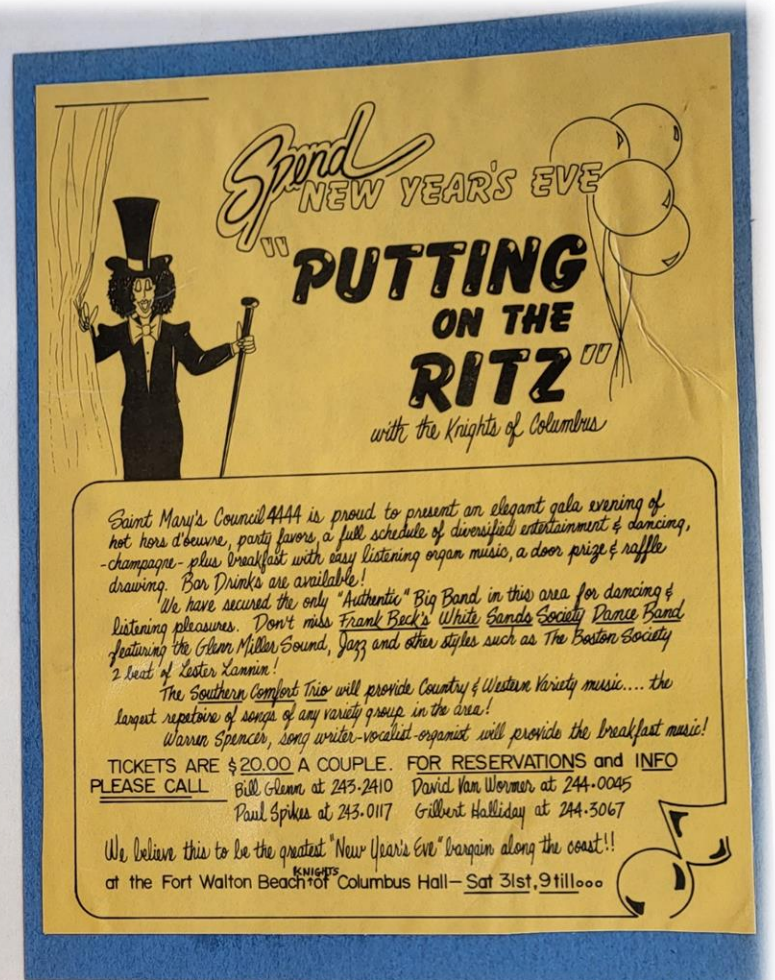 Spend
NEW YEAR'S EVE
"PUTTING
ON THE
RITZ"
with the Knights of Columbus
Saint Mary's Council 4444 is proud to present an elegant gala evening of
hot hors d'oeuvre, party favors, a full schedule of diversified entertainment & dancing,
-champagne- plus breakfast with easy listening organ music, a door prize & raffle
drawing. Bar Drinks are available!
We have secured the only "Authentic" Big Band in this area for dancing &
listening pleasures. Don't miss Frank Beck's White Sands Society Dance Band
featuring the Glenn Miller Sound, Jazz and other styles such as The Boston Society
2 beat of Lester Lannin!
The Southern Comfort Trio will provide Country & Western Variety music.... the
largest repetoire of songs of any variety group in the area!
Warren Spencer, song writer-vocalist-organist will provide the breakfast music!
TICKETS ARE $20.00 A COUPLE. FOR RESERVATIONS and INFO
PLEASE CALL Bill Glenn at 243.2410 David Van Wormer at 244.0045
Paul Spikes at 243.0117 Gilbert Halliday at 244.3067
We believe this to be the greatest "New Year's Eve" bargain along the coast!!
at the Fort Walton Beach KNIGHTS of Columbus Hall– Sat 31st, 9 till...